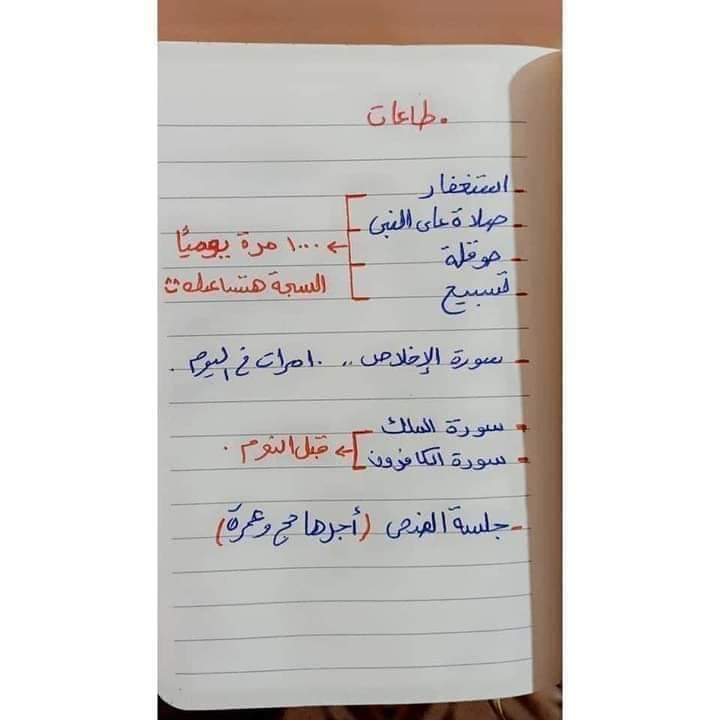 . طاعات
- استغفار
- صلاة على النبي
- حوقلة
- تسبيح
← ١٠٠٠ مرة يوميًا
السبحة هتساعدك
- سورة الإخلاص .. ١٠ مرات في اليوم .
- سورة الملك
- سورة الكافرون
← قبل النوم .
- جلسة الضحى (أجرها حج وعمرة)